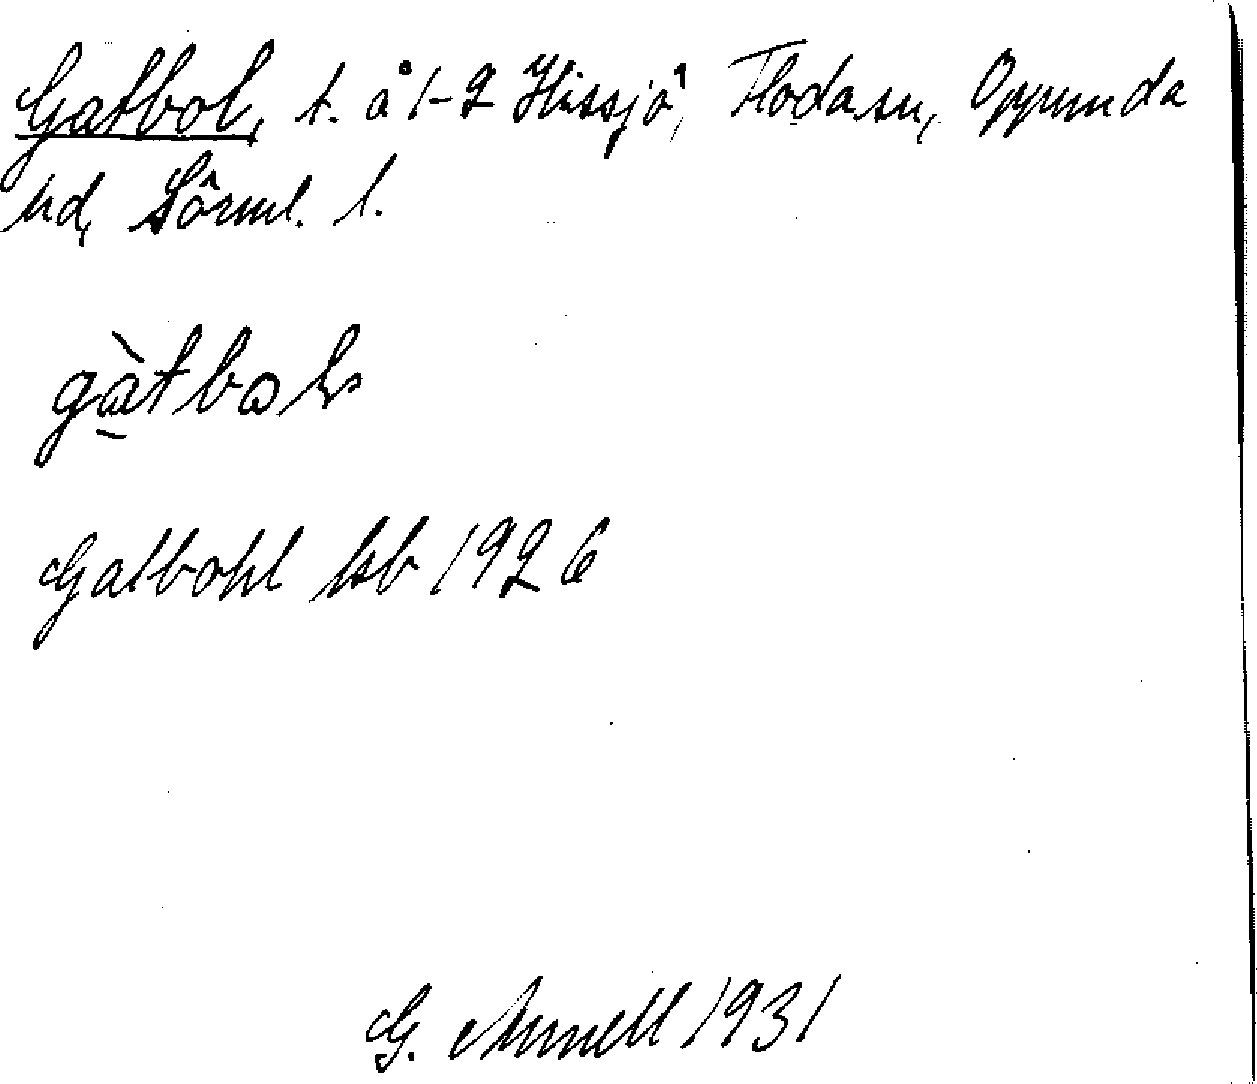 Gatbol, t. å 1-2 Hissjö, Floda sn, Oppunda
hd, Sörml. l.
gàtbol
Gatbohl kb 1926
G. Annell 1931